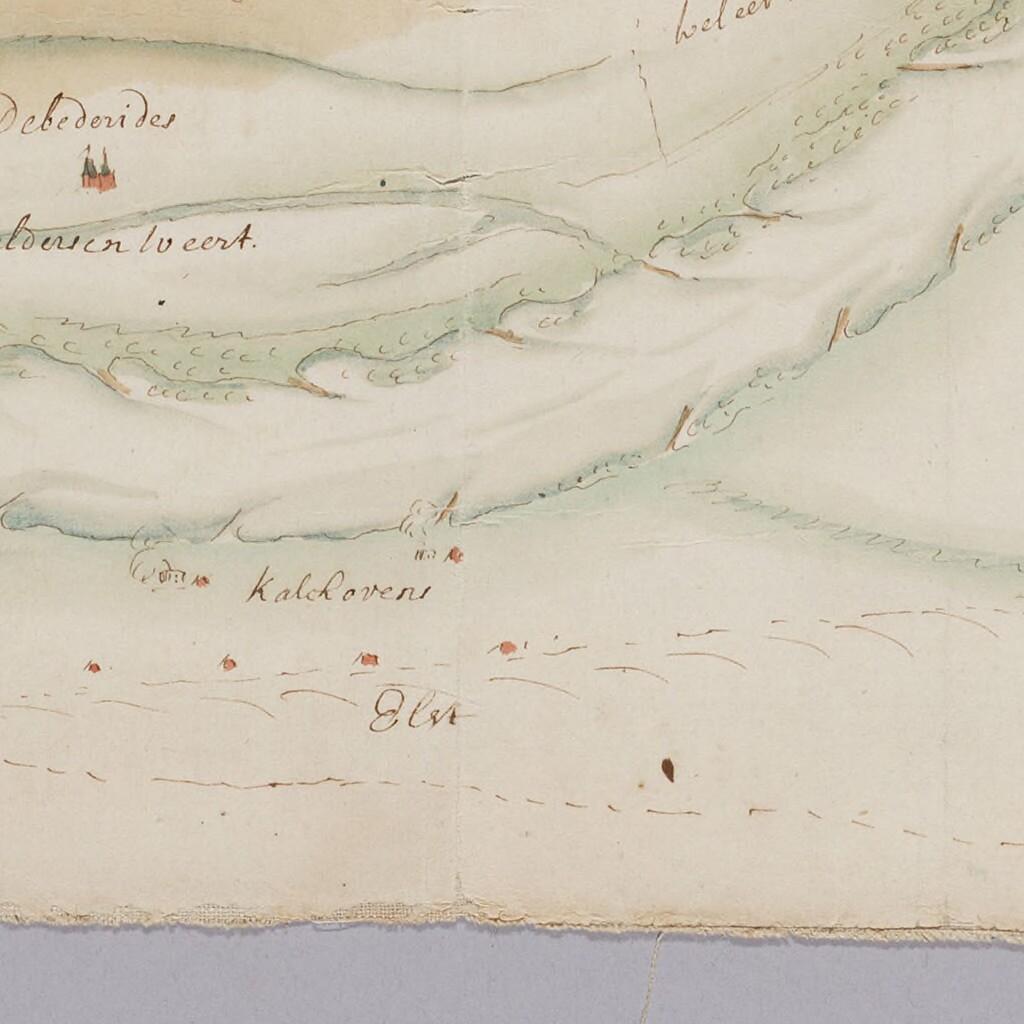 weleer
Debederides
eldersen weert.
Kalckovens
Elst